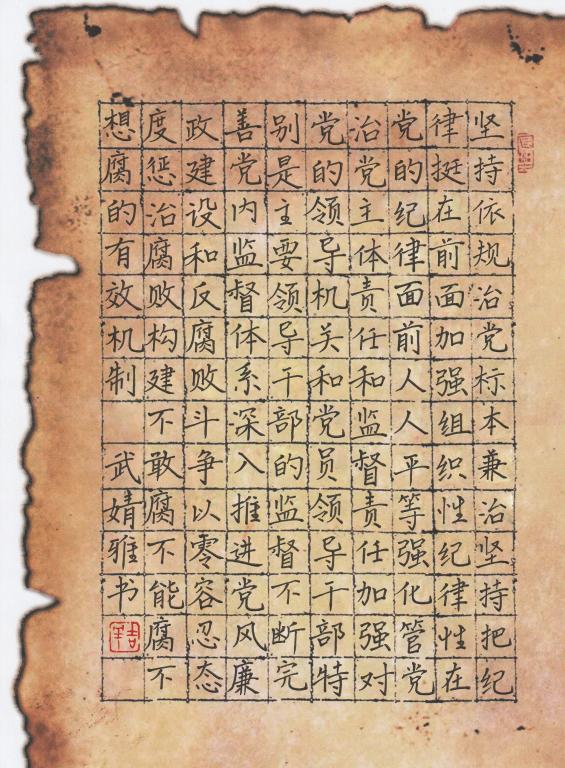 坚持依规治党标本兼治坚持把纪
律挺在前面加强组织性纪律性在
党的纪律面前人人平等强化管党
治党主体责任和监督责任加强对
党的领导机关和党员领导干部特
别是主要领导干部的监督不断完
善党内监督体系深入推进党风廉
政建设和反腐败斗争以零容忍态
度惩治腐败构建不敢腐不能腐不
想腐的有效机制 武婧雅书